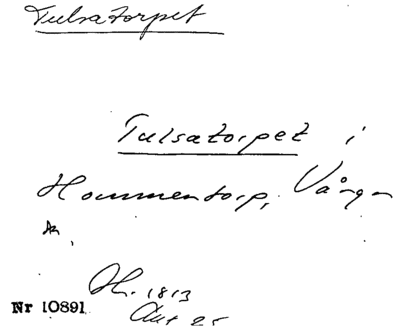 Tulsatorpet
Tulsatorpet i
Hommentorp, Vånga
sn,
Hr. 1813
Akt 25
Nr 10891